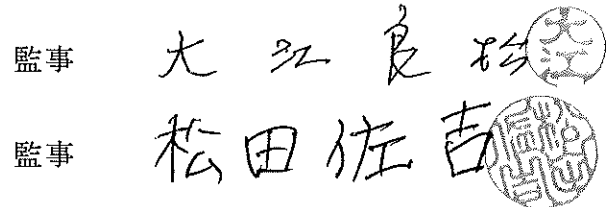 監事 大江良松 大江
監事 松田佐吉